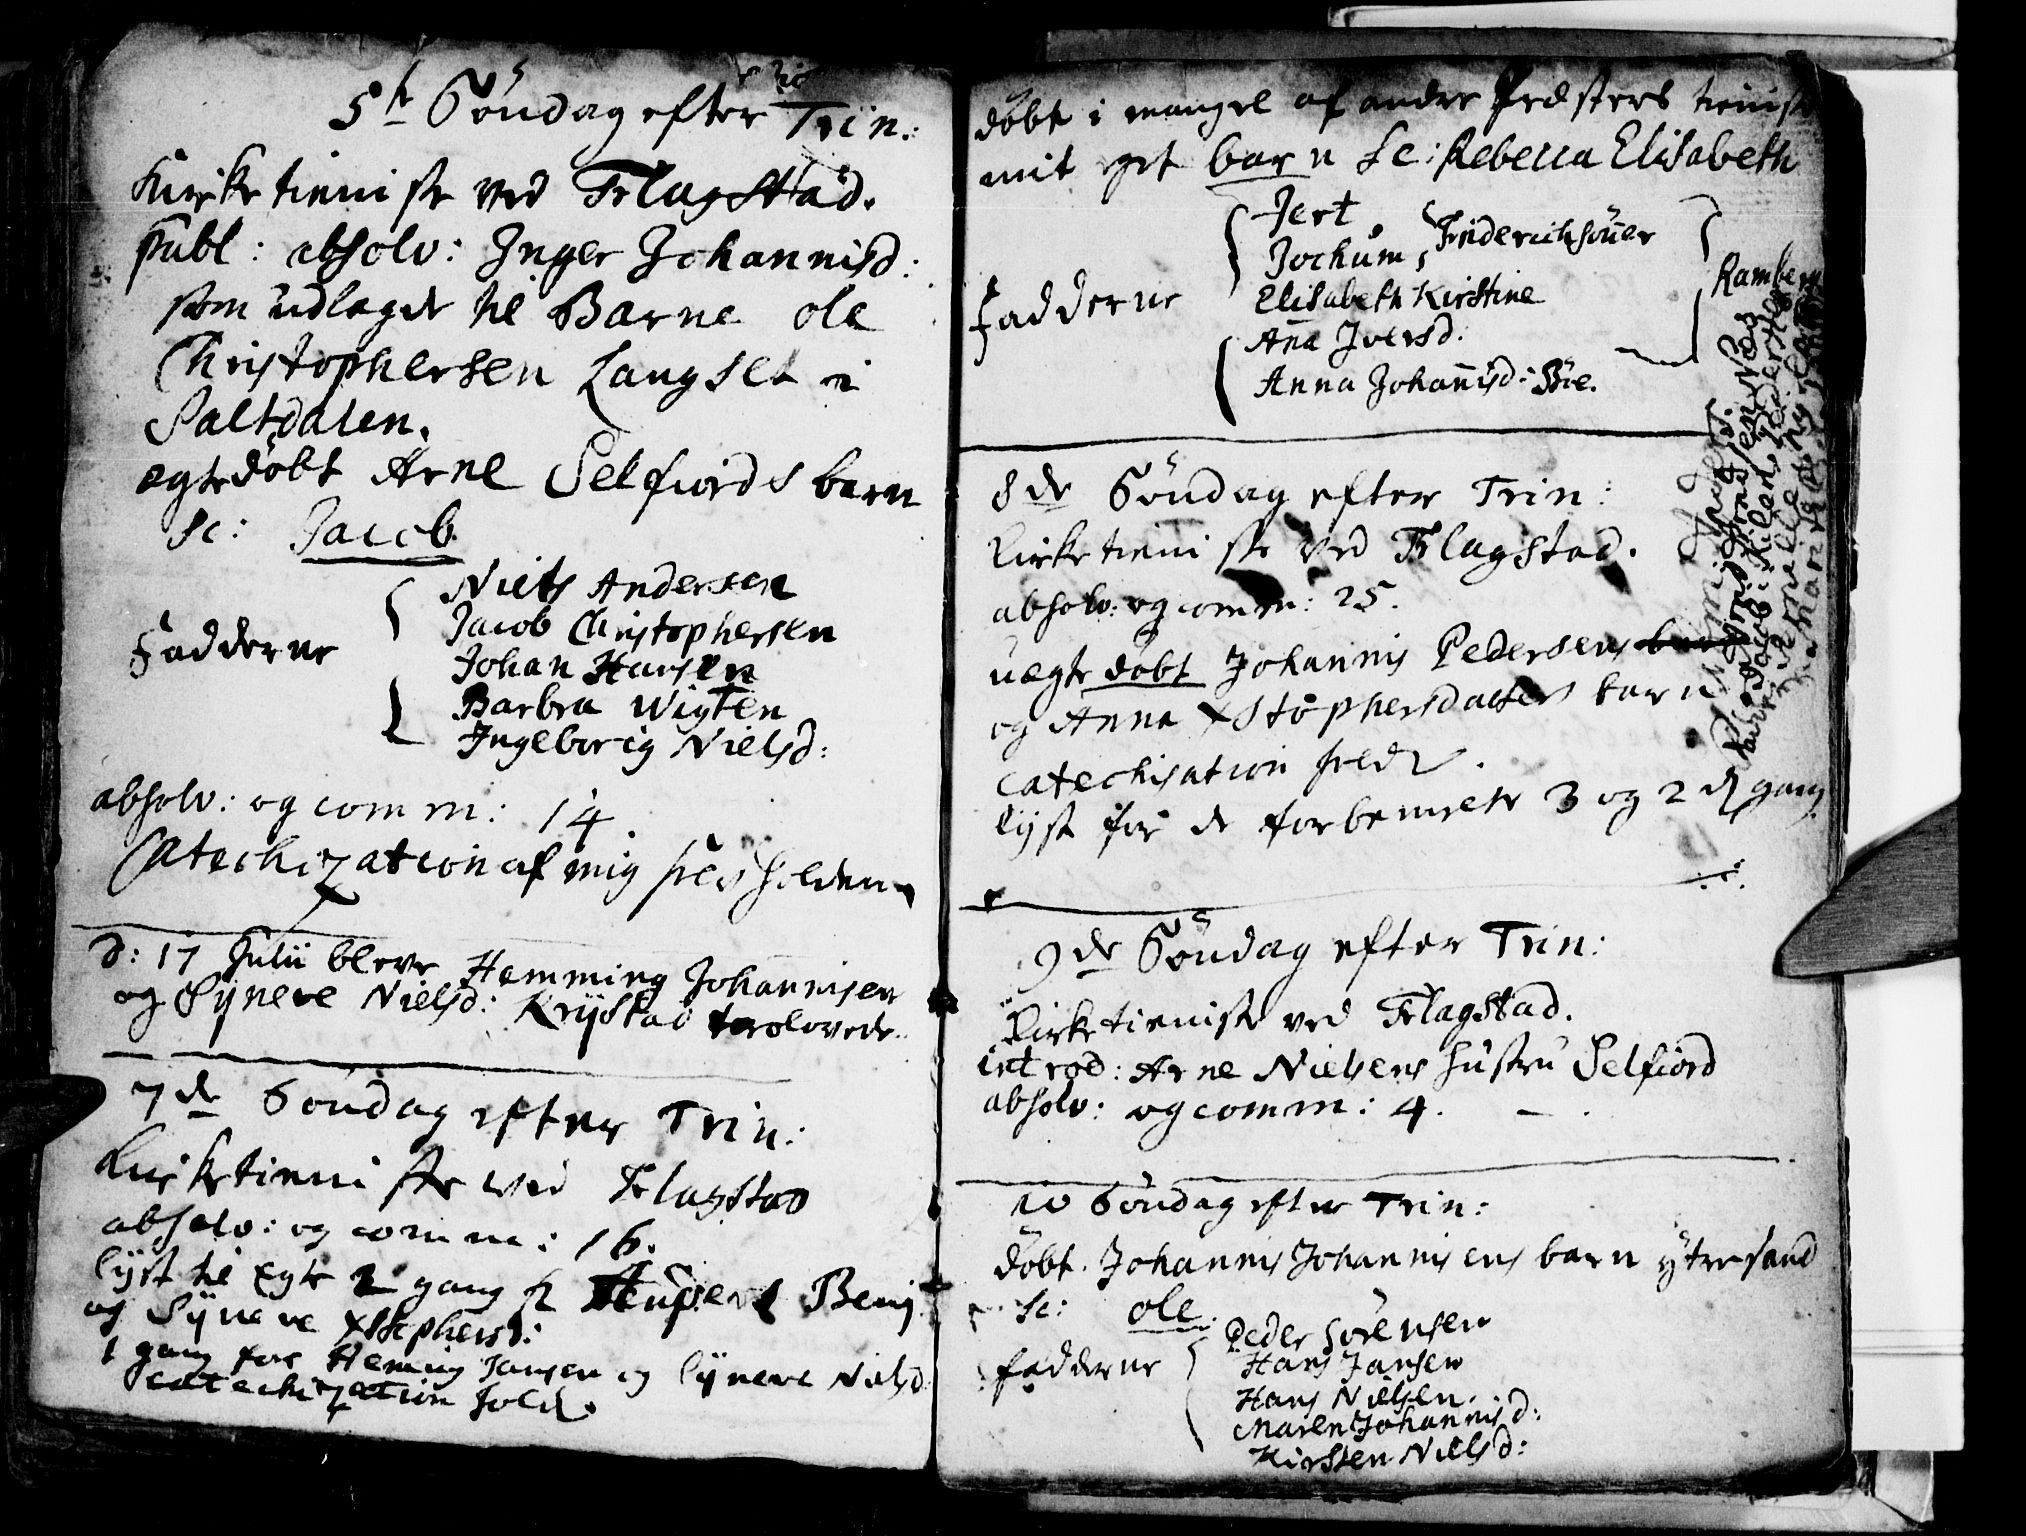 5te Søndag efter Trin:
Kirketienniste ved Flagstad.
publ: absolv: Inger Johannisd:
som udlagde til Barne ole
Christophersen Langset i
Saltdalen.
ægte døbt Arne Selfiords barn
sc: Jacob
Fadderne
Niels Andersen
Jacob Christophersen
Johan Hansen
Barbra Wigten
Ingeborig Nielsd:
absolv: og comm: 14
Catechization af mig holden
d: 17 Julii bleve Hemming Johannisen
og Syneve Nielsd: Krystad trolovede.
7de Søndag efter Trin:
Kirketienniste ved Flagstad
absolv: og comm: 16.
lyst til Egte 2 gang Beny
og Syneve xstophersd:
1 gang for Heming Jansen og Syneve Nielsd
catechization hold.
døbt i mangel af andre Præsters tieniste
mit eget barn sc: Rebecca Elisabeth
Fadderne
Jert
Jochum, Friderichsøner
Elisabeth Kirstine
Ramberg
Ane Joersd:
Anna Johannisd: Bøe.
8de Søndag efter Trin:
Kirketienniste ved Flagstad.
absolv: og comm: 25.
uægte døbt Johannis Pedersens
og Anna xstophersdatters barn
catechisation holdt.
lyst for de forbemelte 3 og 2den gang
9de Søndag efter Trin:
Kirketienniste ved Flagstad.
introd: Arne Nielsens hustru Selfiord
absolv: og comm: 4.
10 Søndag efter Trin:
døbt Johannis Johannisens barn ytresand
sc: ole
fadderne
Peder Sørensen
Hans Jansen
Hans Nielsen
Maren Johannisd:
Kirsten Nielsd: